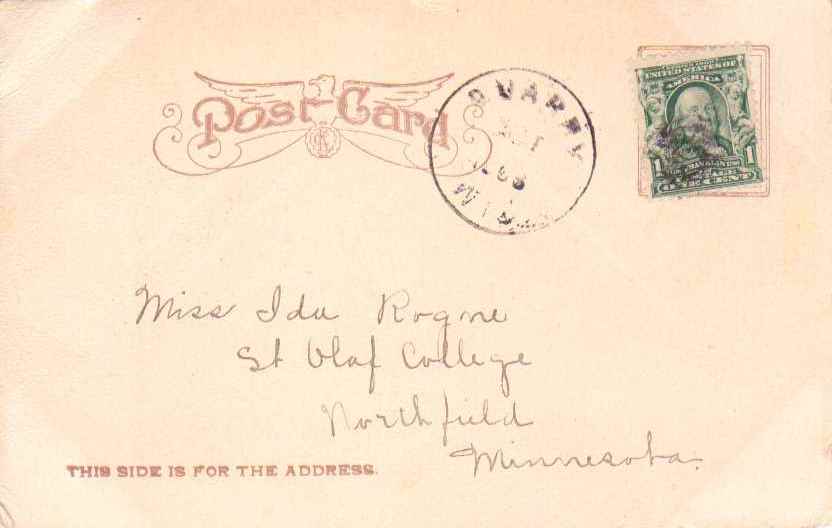 Post Card
OCT
06
MINN
UNITED STATES OF
AMERICA
1 1
ONE CENT
Miss Ida Rogne
St Olaf College
Northfield
Minnesota.
THIS SIDE IS FOR THE ADDRESS.